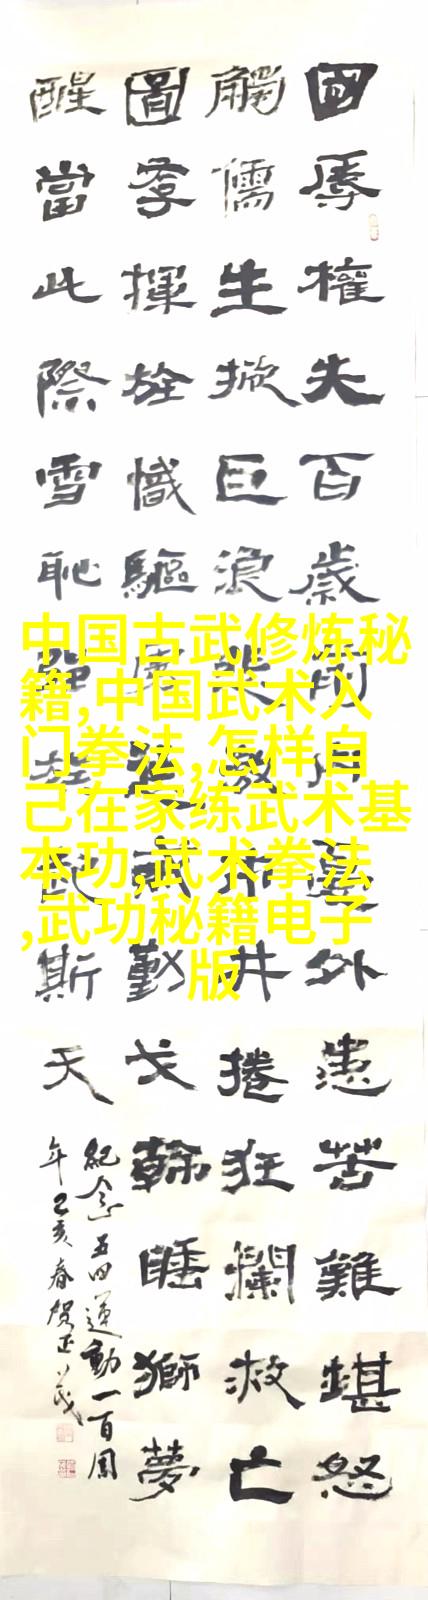 國辱權失百歲前外患苦難堪怒
觸儒生掀巨浪井捲狂瀾救亡
圖存揮旌幟驅戈睡獅夢
醒當此際雪恥強斯天
紀念五四運動一百周
年己亥春贺正茂
中国古武修炼秘
籍,中国武术入
门拳法,怎样自
己在家练武术基
本功,武术拳法
,武功秘籍电子
版